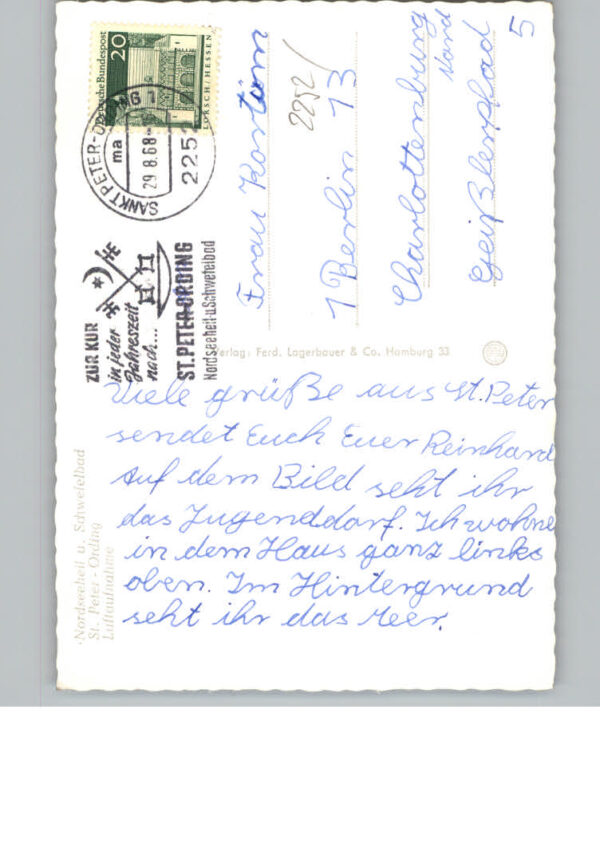 Viele grüße aus St. Peter
sendet Euch Euer Reinhard
Auf dem Bild seht ihr
das Jugenddorf. Ich wohne
in dem Haus ganz links
oben. Im Hintergrund
seht ihr das Meer.
Frau
2252/
1 Berlin 13
Charlottenburg
Nord
Geißlerpfad
5
Deutsche Bundespost
20
LORSCH/HESSEN
SANKT PETER-ORDING 1
ma
29.8.68
2252
ZUR KUR
in jeder
Jahreszeit
nach...
ST. PETER-ORDING
Nordseeheil-u.Schwefelbad
Verlag: Ferd. Lagerbauer & Co. Hamburg 33
Nordseeheil u. Schwefelbad
St. Peter - Ording
Luftaufnahme